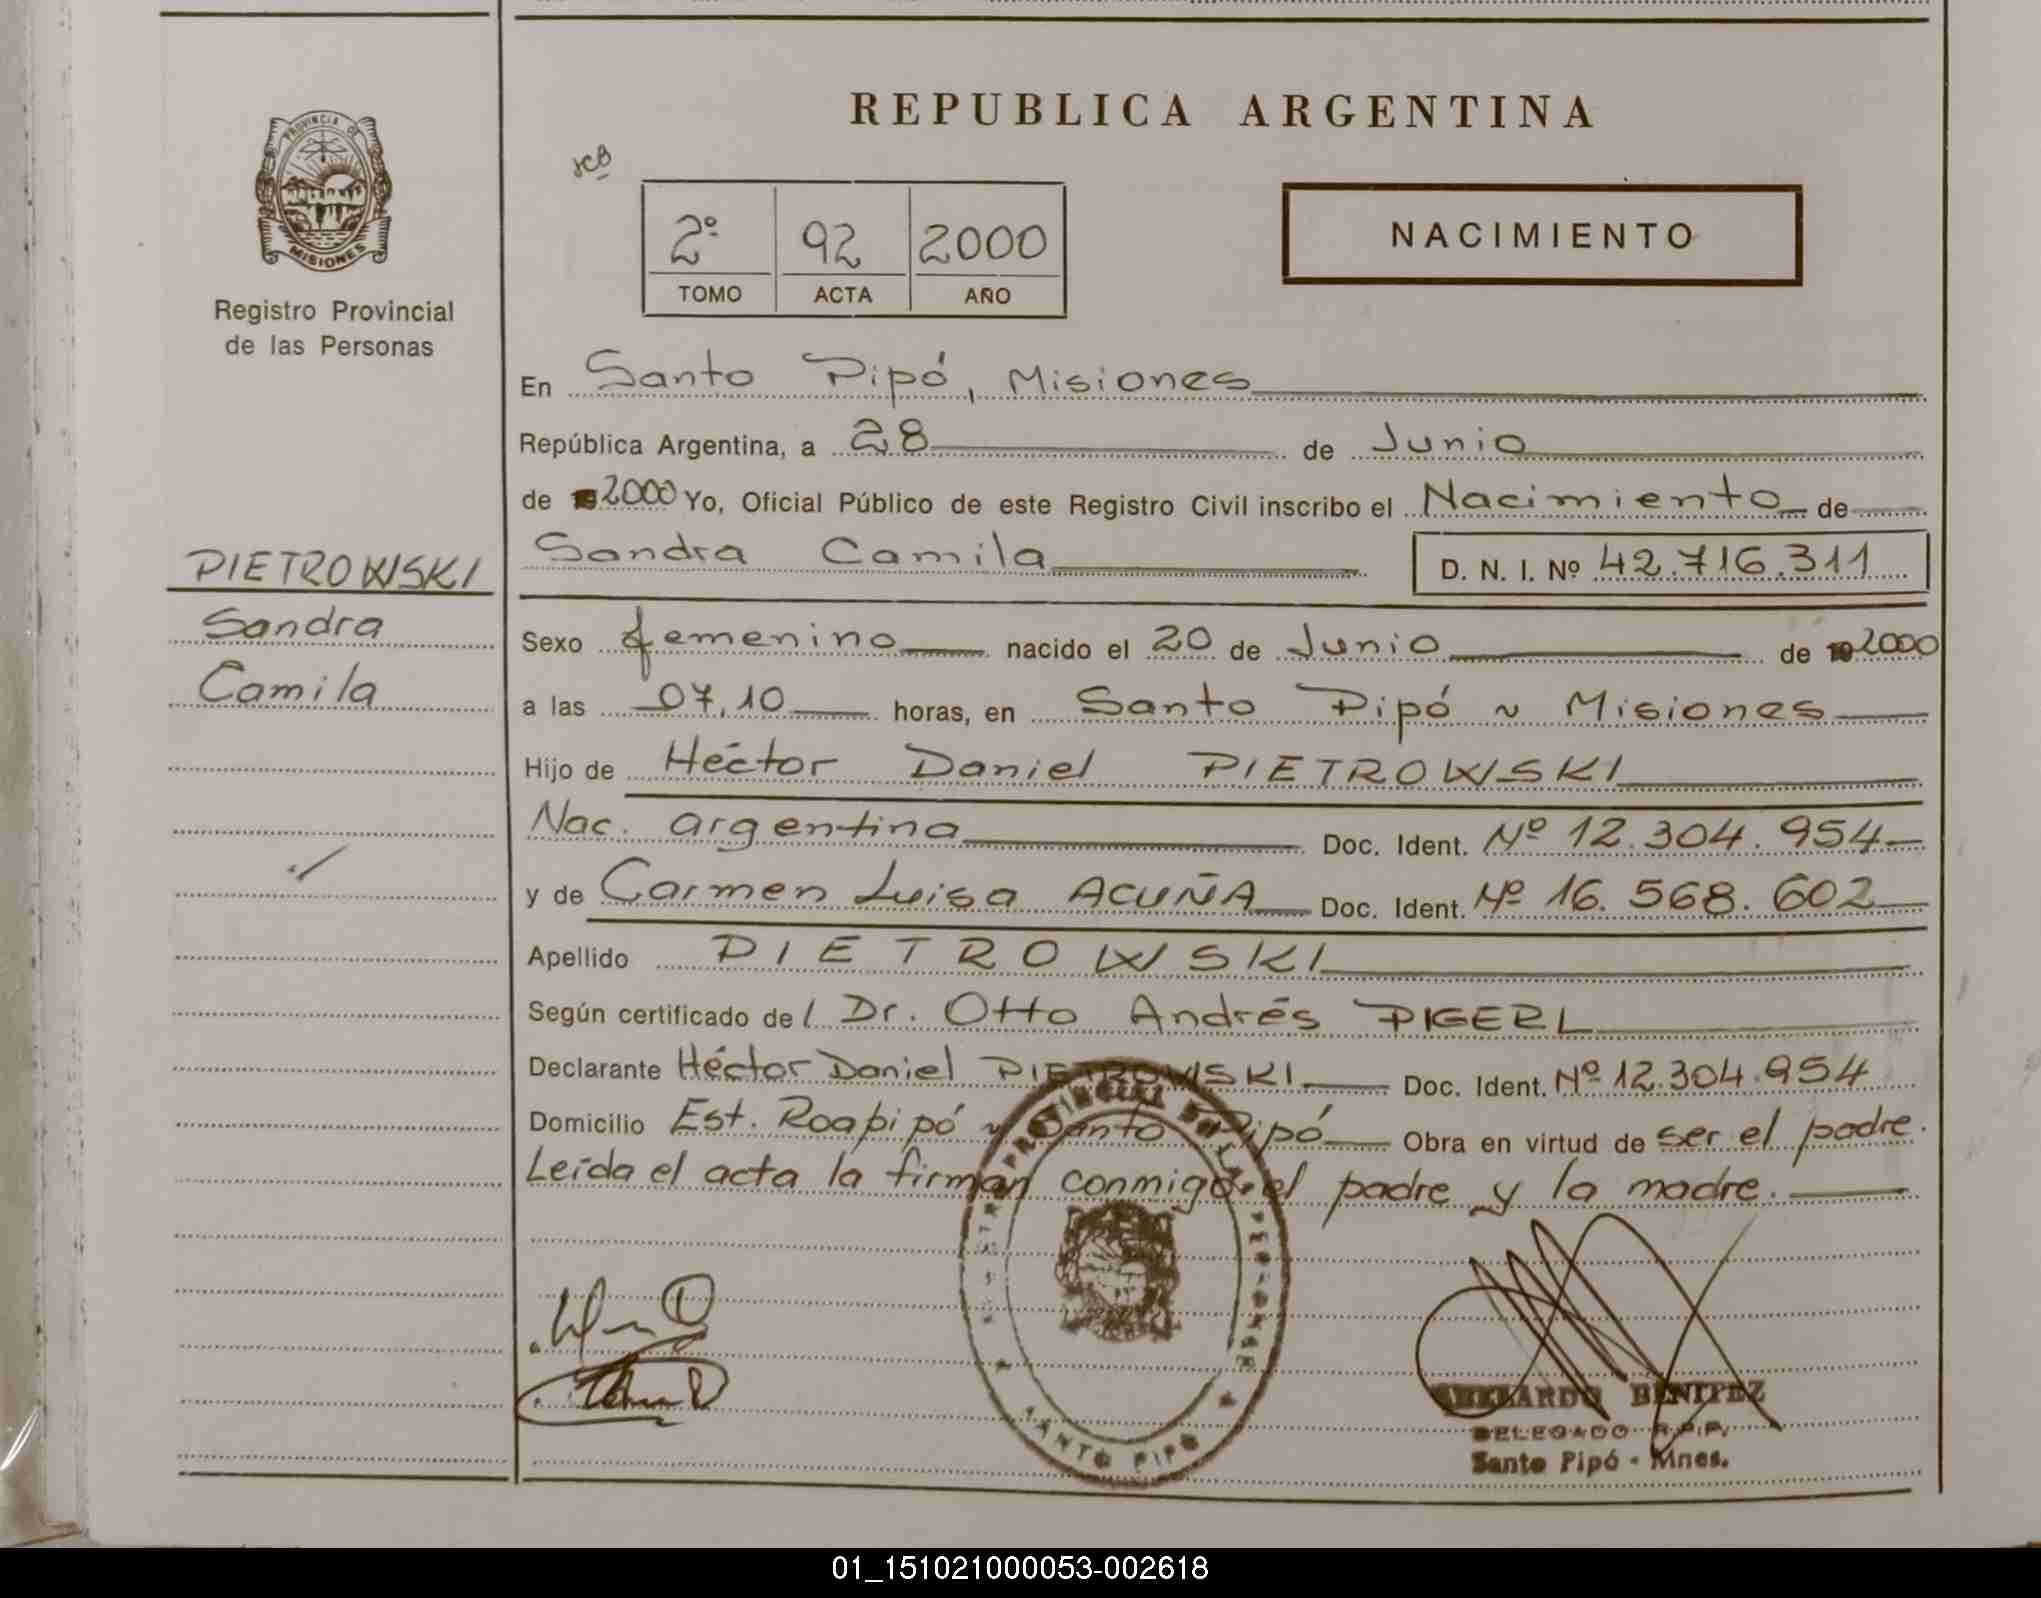 REPUBLICA ARGENTINA
PROVINCIA DE
MISIONES
Registro Provincial
de las Personas
2º 92 2000
TOMO ACTA AÑO
NACIMIENTO
En Santo Pipó, Misiones
República Argentina, a 28 de Junio
de 19 2000 Yo, Oficial Público de este Registro Civil inscribo el Nacimiento de
Sandra Camila D. N. I. Nº 42.716.311
PIETROWSKI
Sandra
Camila
Sexo femenino nacido el 20 de Junio de 19 2000
a las 07,10 horas, en Santo Pipó ~ Misiones
Hijo de Héctor Daniel PIETROWSKI
Nac. argentina Doc. Ident. Nº 12.304.954
y de Carmen Luisa ACUÑA Doc. Ident. Nº 16.568.602
Apellido PIETROWSKI
Según certificado del Dr. Otto Andrés PIGERL
Declarante Héctor Daniel PIETROWSKI Doc. Ident. Nº 12.304.954
Domicilio Est. Roapipó ~ Santo Pipó Obra en virtud de ser el padre.
Leída el acta la firman conmigo el padre y la madre.
PROVINCIAL DE LAS PERSONAS
SANTO PIPO
ABELARDO BENITEZ
DELEGADO R.P.P.
Santo Pipó - Mnes.
01_151021000053-002618